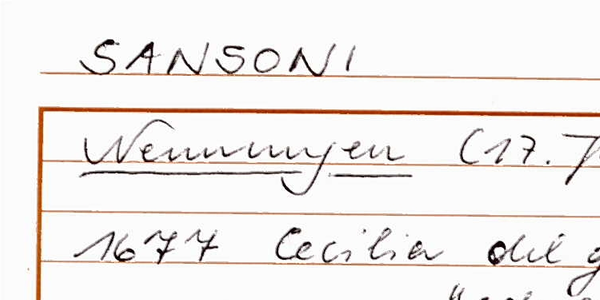 SANSONI
Wemmingen (17. J
1677 Cecilia del g